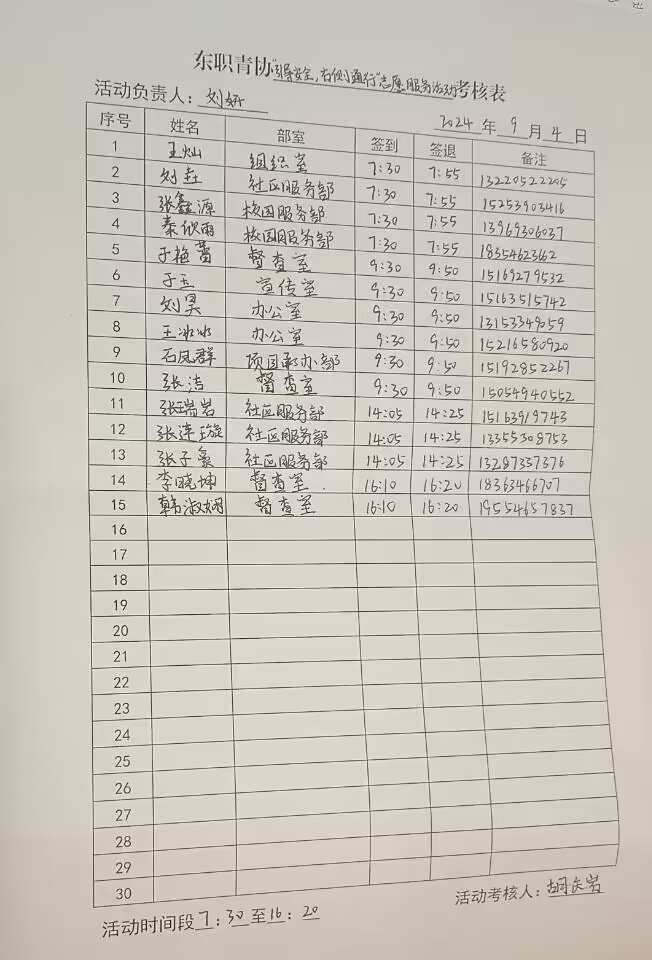 东职青协"引导安全,右侧通行"志愿服务活动考核表
活动负责人：刘妍
2024 年 9 月 4 日
序号 姓名 部室 签到 签退 备注
1 王灿 组织室 7:30 7:55 13220522205
2 刘垚 社区服务部 7:30 7:55 15253903416
3 张鑫源 校园服务部 7:30 7:55 13969306037
4 秦欣雨 校园服务部 7:30 7:55 18354623662
5 于艳蕾 督查室 9:30 9:50 15169279532
6 于玉 宣传室 9:30 9:50 15163515742
7 刘昊 办公室 9:30 9:50 13153349059
8 王冰冰 办公室 9:30 9:50 15216580920
9 石凤群 项目承办部 9:30 9:50 15192852267
10 张洁 督查室 9:30 9:50 15054940552
11 张瑞岩 社区服务部 14:05 14:25 15163919743
12 张津璇 社区服务部 14:05 14:25 13355308753
13 张子 社区服务部 14:05 14:25 13287337376
14 李晓坤 督查室 16:10 16:20 18363466707
15 韩淑娴 督查室 16:10 16:20 19554657837
16
17
18
19
20
21
22
23
24
25
26
27
28
29
30
活动考核人：胡庆岩
活动时间段 7：30 至 16：20